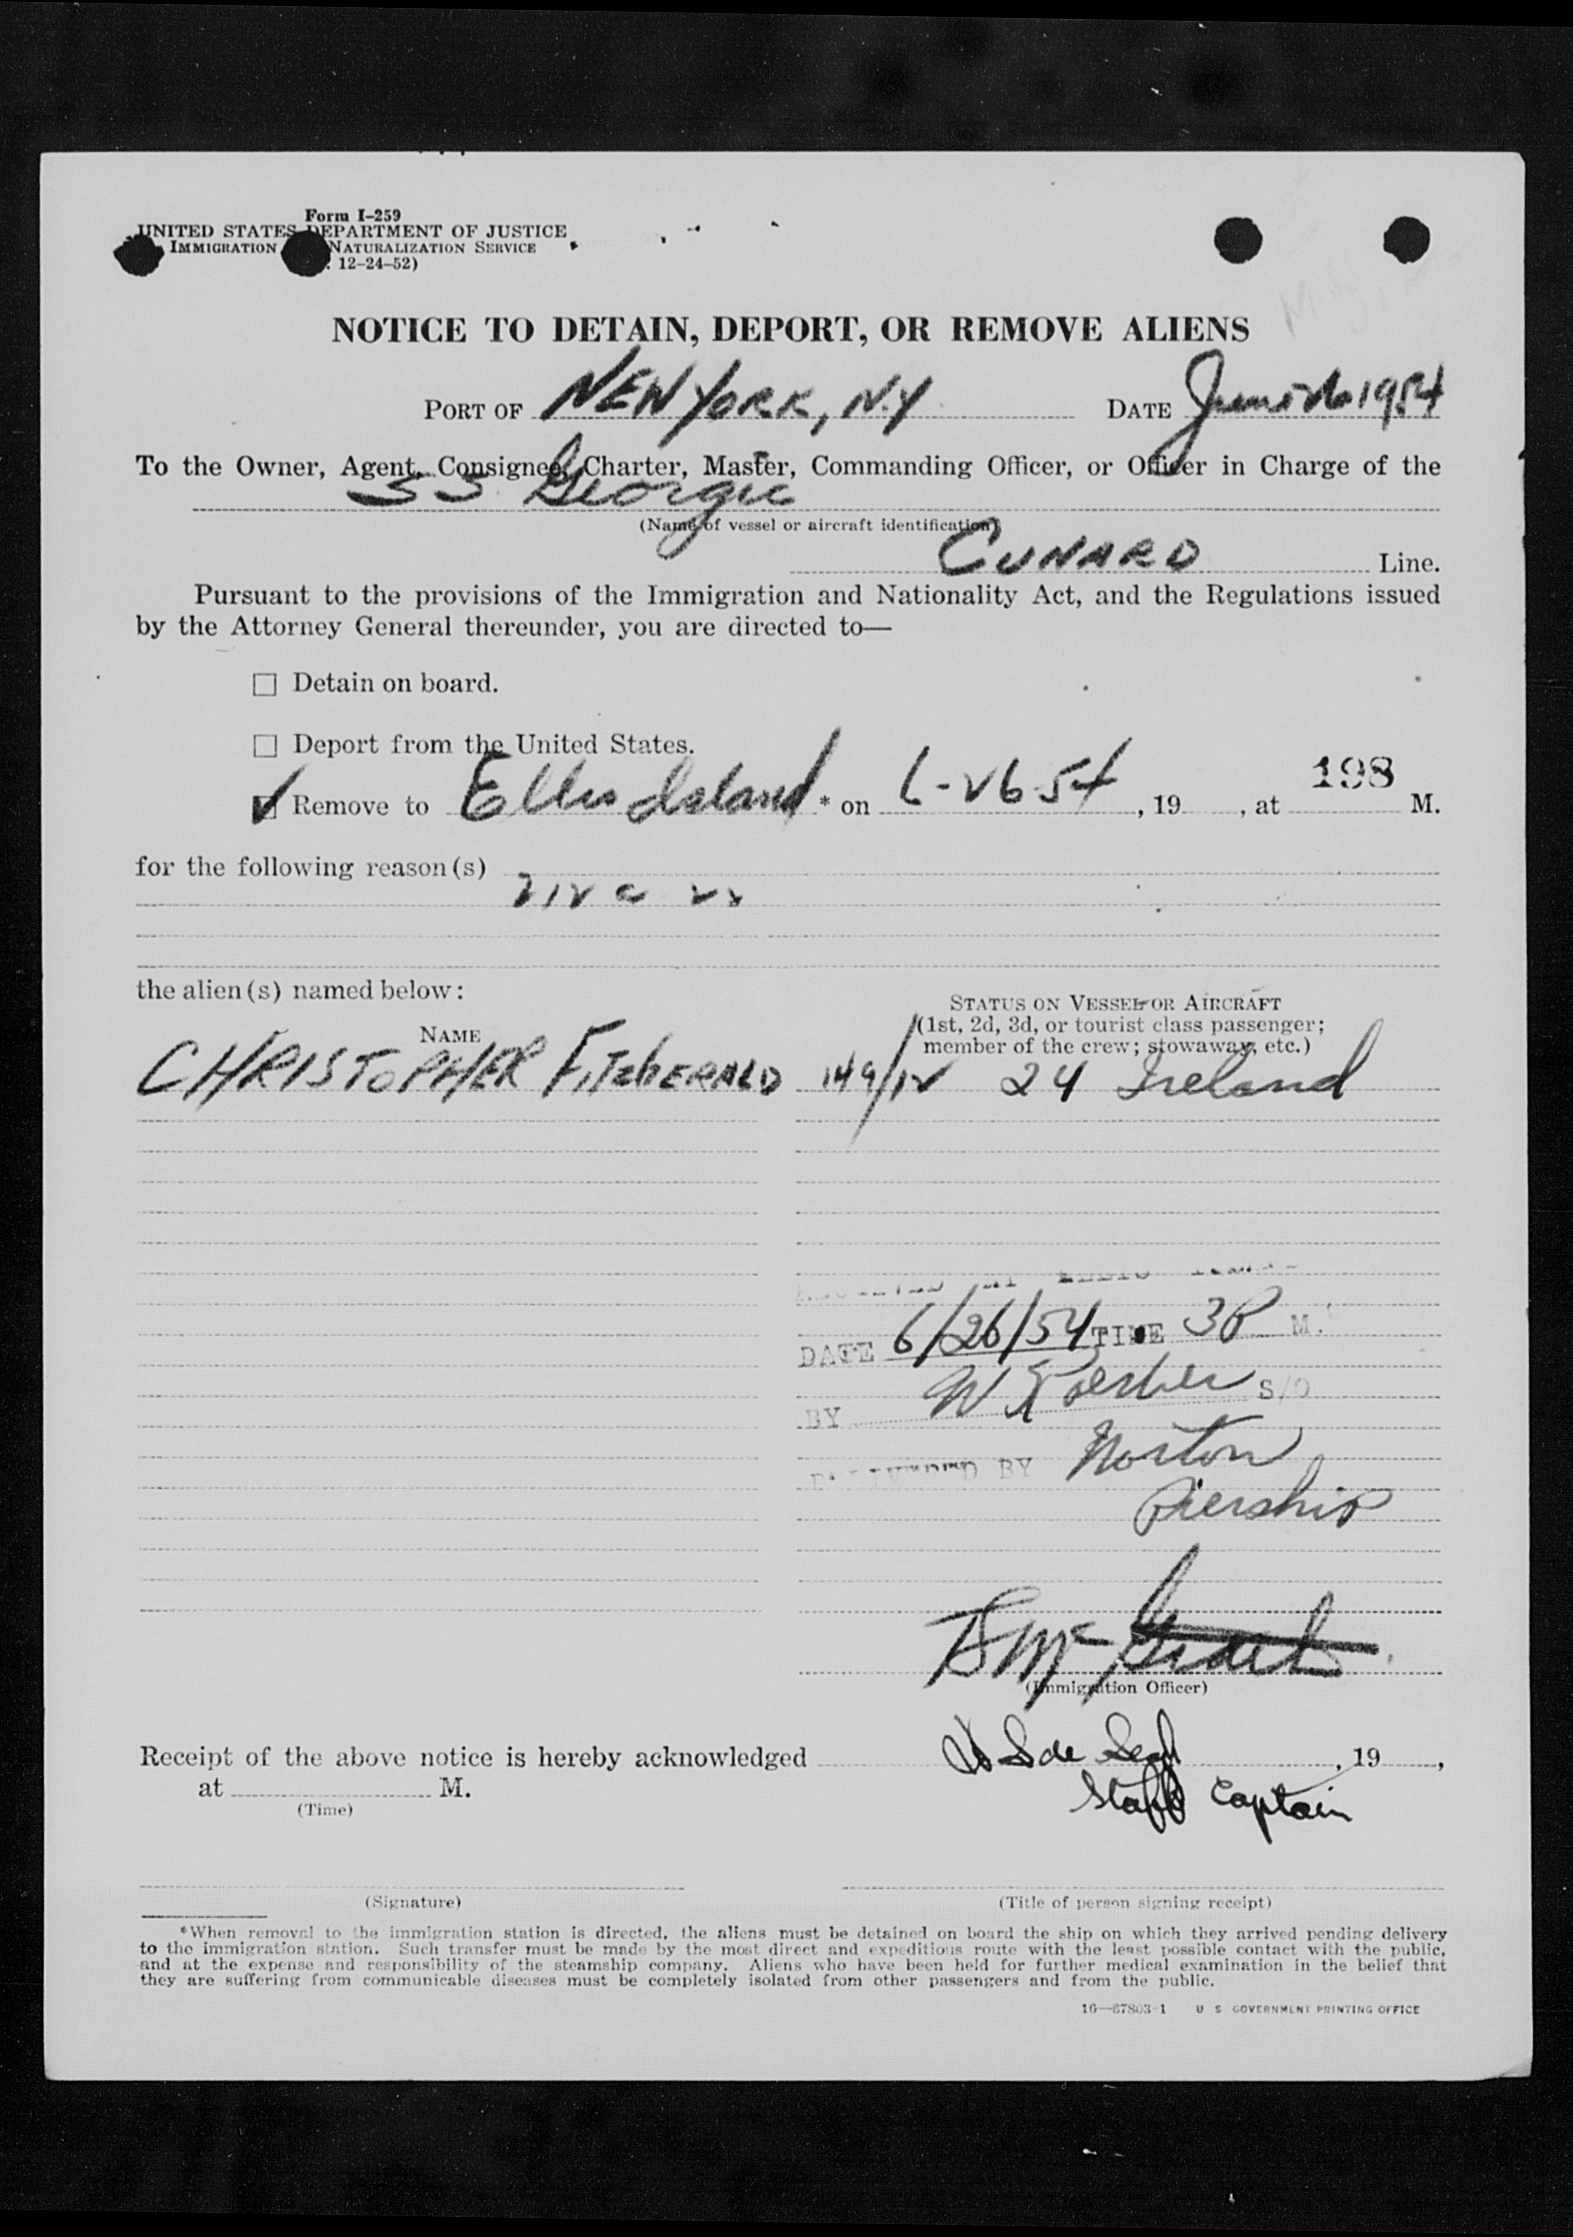 Form I-259
UNITED STATES DEPARTMENT OF JUSTICE
IMMIGRATION NATURALIZATION SERVICE
12-24-52)
NOTICE TO DETAIN, DEPORT, OR REMOVE ALIENS
PORT OF NEW YORK, N.Y DATE June 26 1954
To the Owner, Agent, Consignee, Charter, Master, Commanding Officer, or Officer in Charge of the
SS Georgic
(Name of vessel or aircraft identification)
CUNARD Line.
Pursuant to the provisions of the Immigration and Nationality Act, and the Regulations issued
by the Attorney General thereunder, you are directed to—
Detain on board.
Deport from the United States.
Remove to Ellis Island * on 6-26-54, 19, at 198 M.
for the following reason(s)
212 a
the alien(s) named below:
STATUS ON VESSEL OR AIRCRAFT
(1st, 2d, 3d, or tourist class passenger;
member of the crew; stowaway, etc.)
NAME
CHRISTOPHER FITZGERALD 149/12 24 Ireland
DATE 6/26/54 TIME 3P M.
BY W S/O
BY Norton
Pership
(Immigration Officer)
Receipt of the above notice is hereby acknowledged , 19 ,
Staff Captain
at M.
(Time)
(Signature) (Title of person signing receipt)
*When removal to the immigration station is directed, the aliens must be detained on board the ship on which they arrived pending delivery
to the immigration station. Such transfer must be made by the most direct and expeditious route with the least possible contact with the public,
and at the expense and responsibility of the steamship company. Aliens who have been held for further medical examination in the belief that
they are suffering from communicable diseases must be completely isolated from other passengers and from the public.
16—67803-1 U S GOVERNMENT PRINTING OFFICE